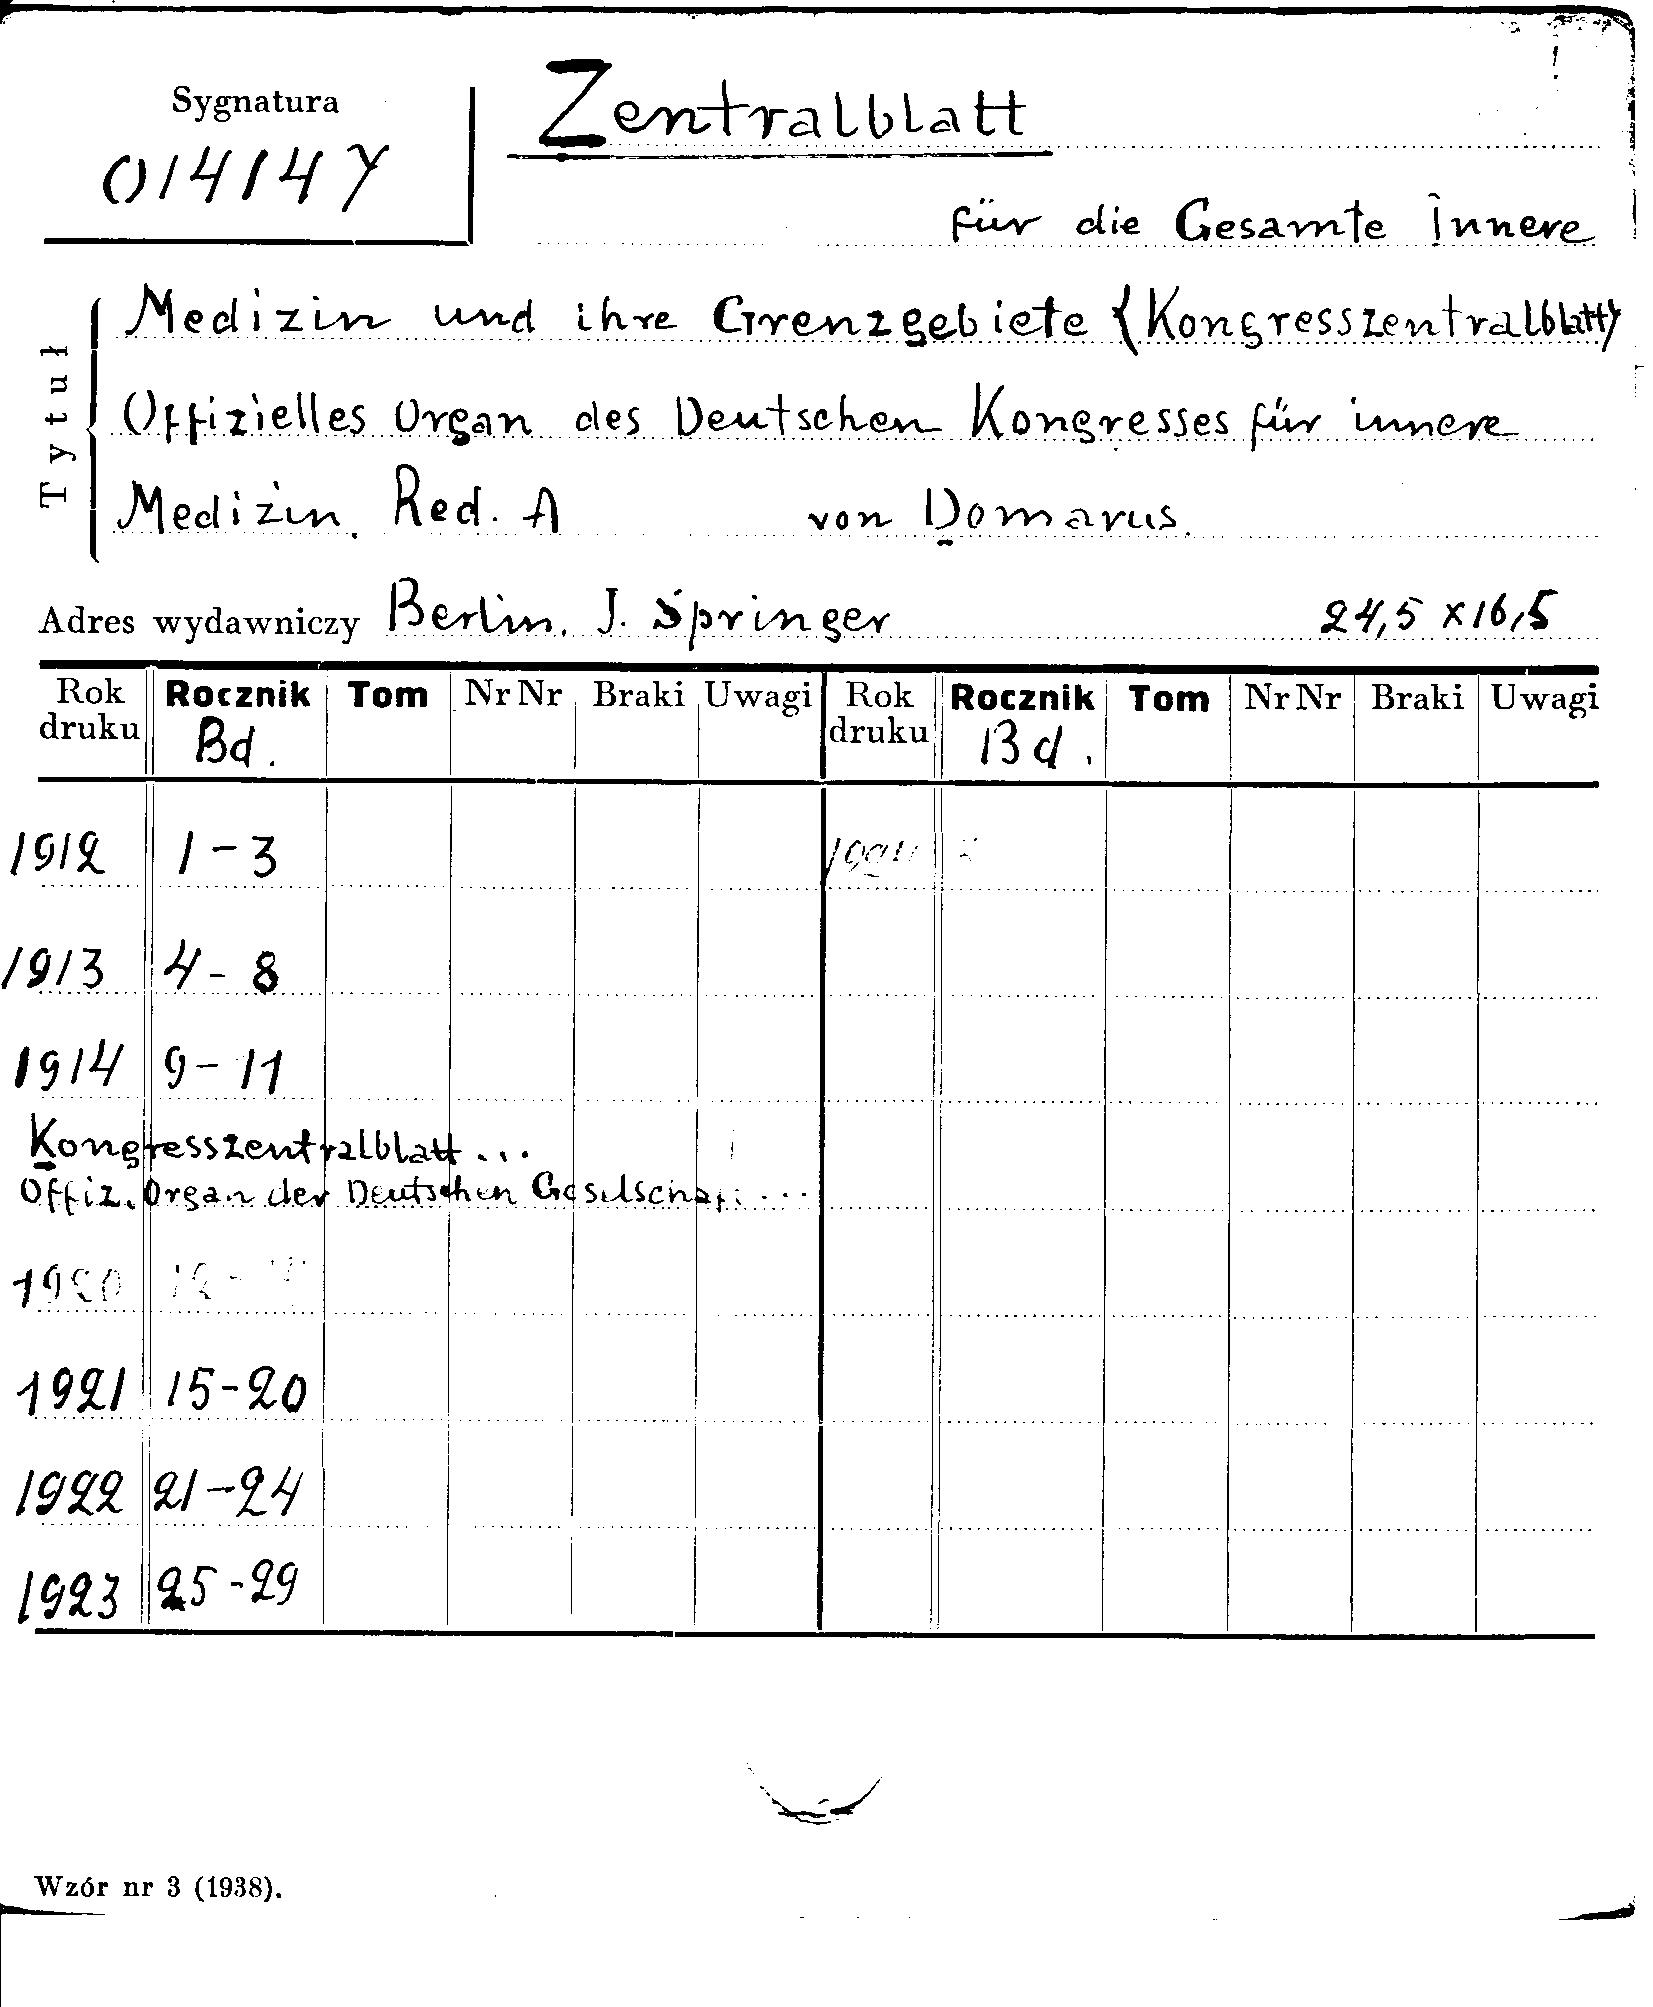 Sygnatura
014147
Zentralblatt
für die Gesamte innere
Medizin und ihre Grenzgebiete (Kongresszentralblatt)
Offizielles Organ des Deutschen Kongresses für innere
Medizin. Red. A von Domarus.
Tytuł
Adres wydawniczy Berlin. J. Springer 24,5 x 16,5
Rok druku Rocznik Tom Nr Nr Braki Uwagi Rok druku Rocznik Tom Nr Nr Braki Uwagi
Bd. Bd.
1912 1-3
1913 4-8
1914 9-11
Kongresszentralblatt...
Offiz. Organ der Deutschen ...
1920
1921 15-20
1922 21-24
1923 25-29
Wzór nr 3 (1938).